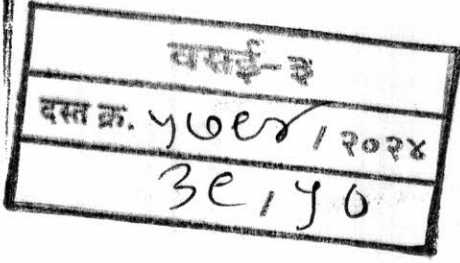 वसई-३
दस्त क्र. ५७९४ / २०२४
३९ / ५०